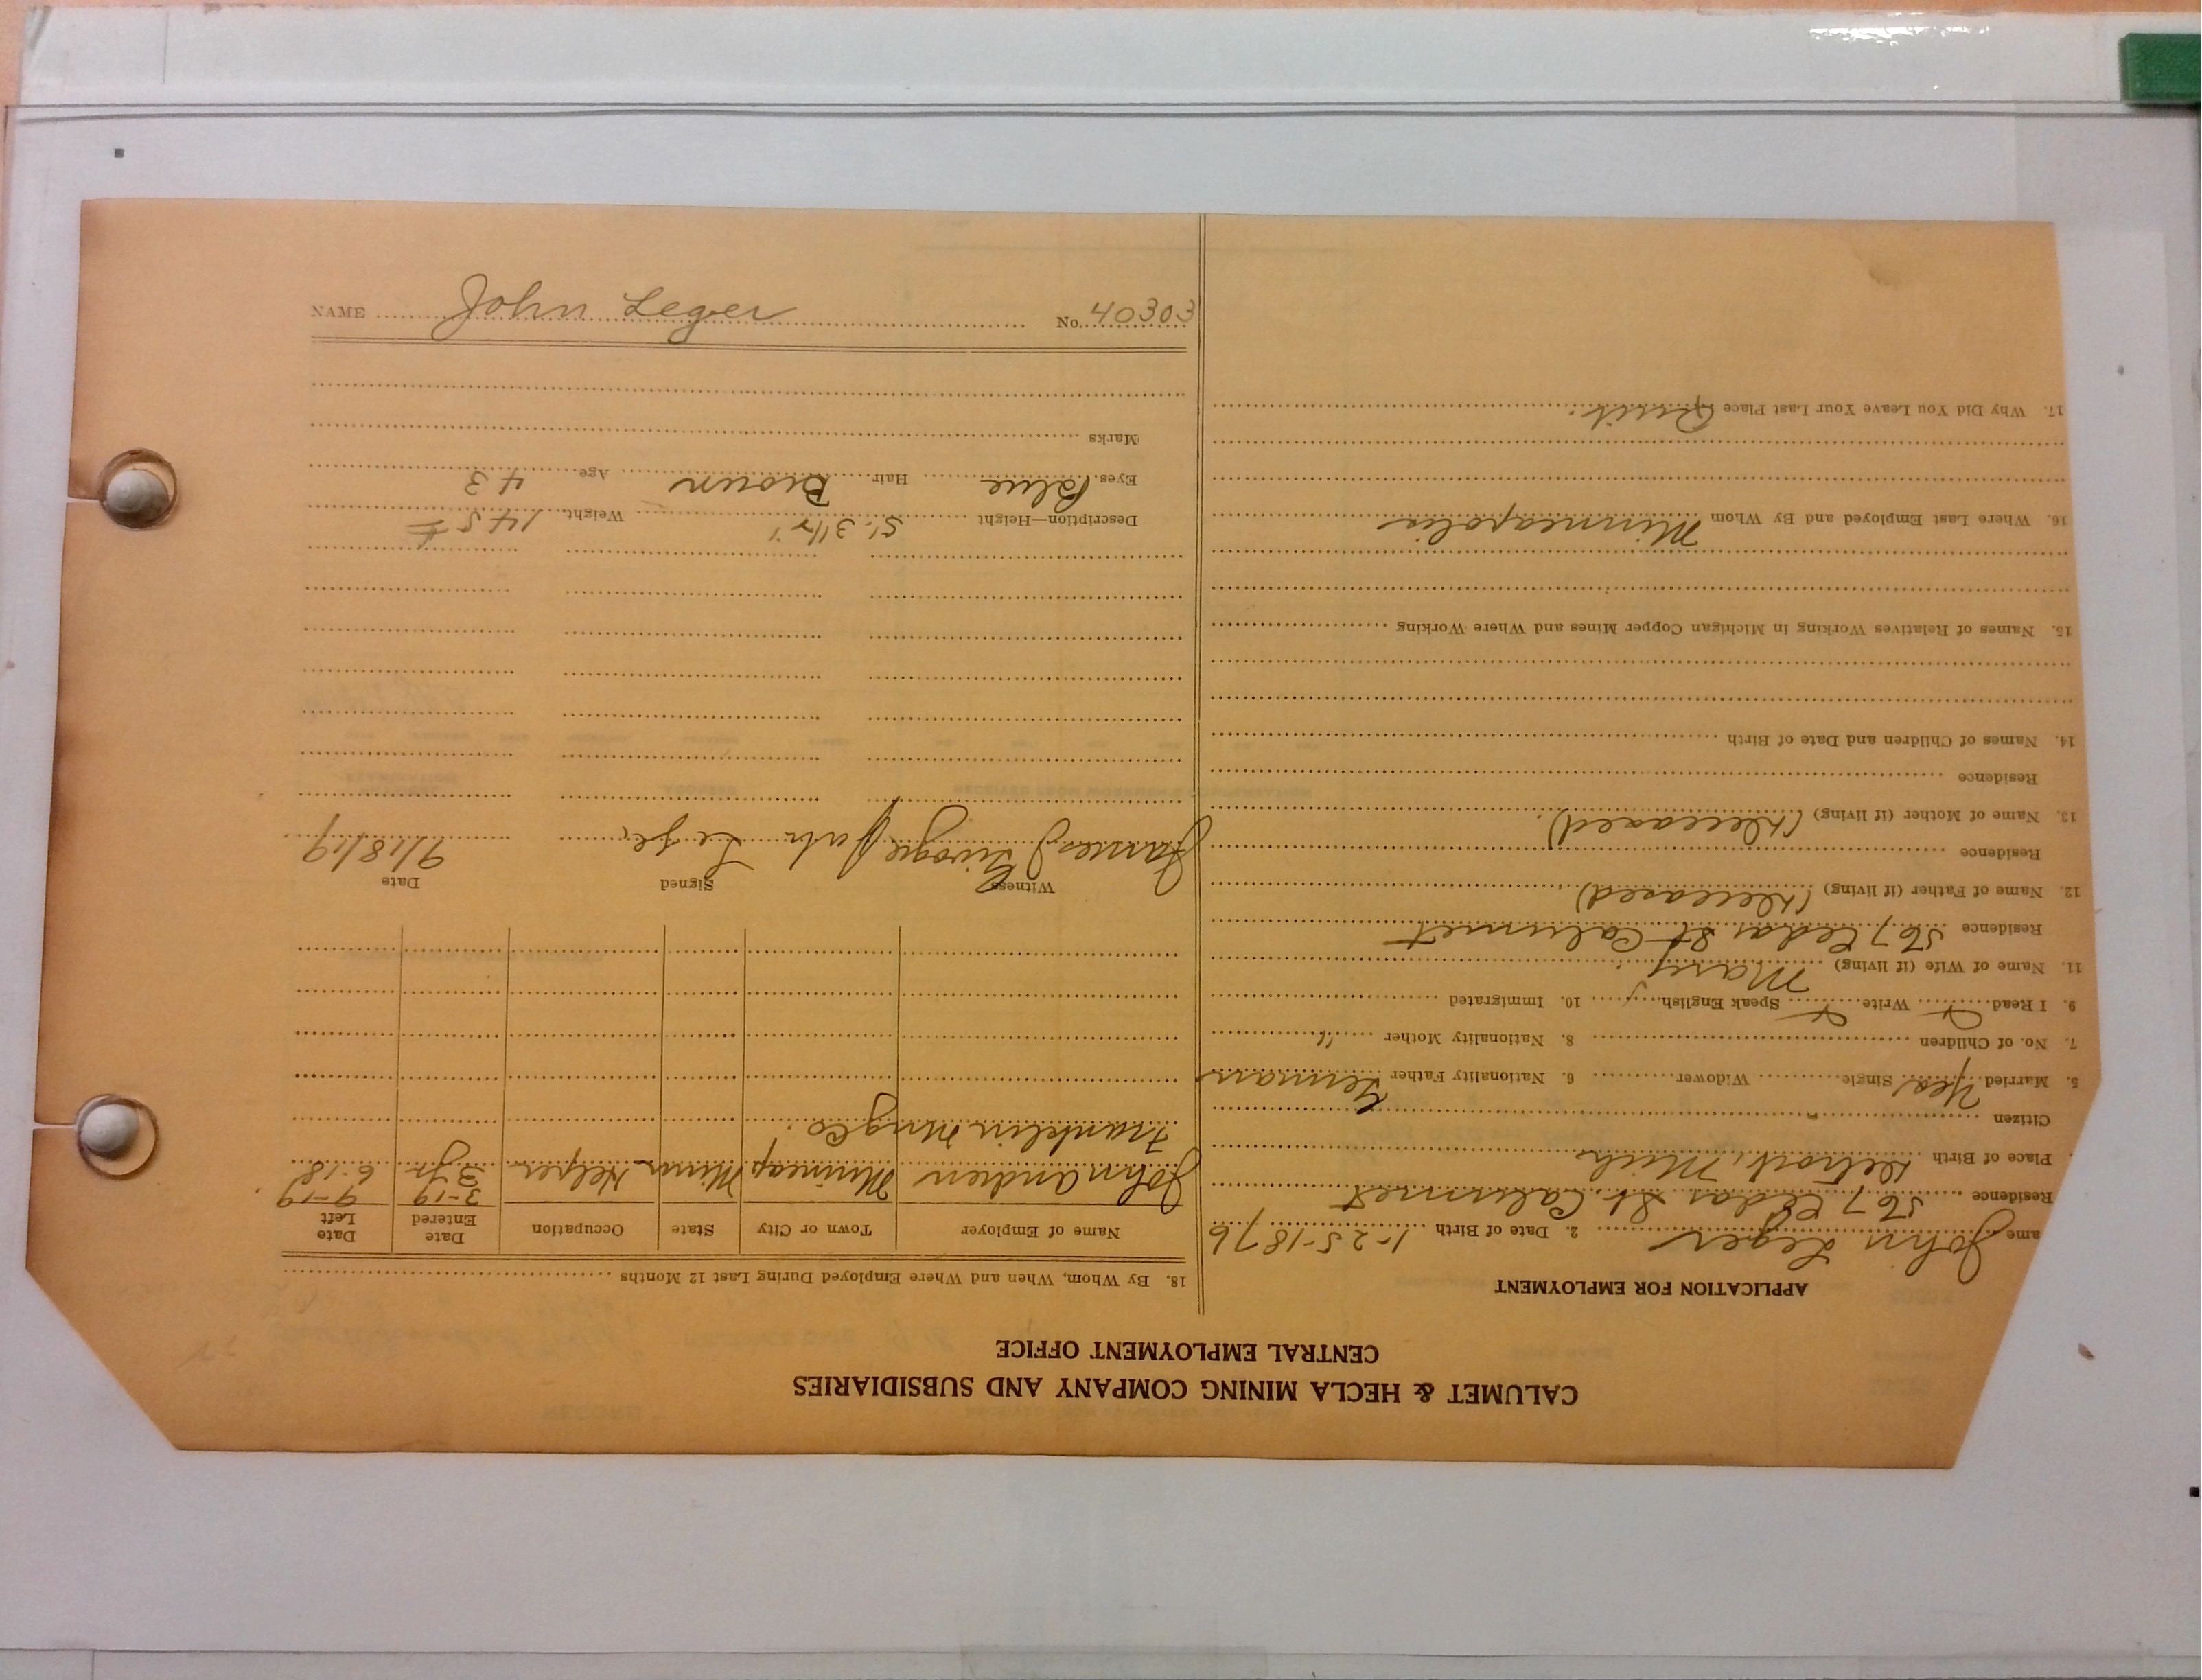 CALUMET & HECLA MINING COMPANY AND SUBSIDIARIES
CENTRAL EMPLOYMENT OFFICE
APPLICATION FOR EMPLOYMENT
ame John Leger 2. Date of Birth 1-25-1876
Residence 567 Cedar St. Calumet
Place of Birth Detroit, Mich
Citizen
5. Married Yes Single Widower 6. Nationality Father German
7. No. of Children 8. Nationality Mother "
9. I Read Write Speak English 10. Immigrated
11. Name of Wife (if living) Mary
Residence 567 Cedar St Calumet
12. Name of Father (if living) (Deceased)
Residence
13. Name of Mother (if living) (Deceased)
Residence
14. Names of Children and Date of Birth
15. Names of Relatives Working in Michigan Copper Mines and Where Working
16. Where Last Employed and By Whom Minneapolis
17. Why Did You Leave Your Last Place Quit.
18. By Whom, When and Where Employed During Last 12 Months
Name of Employer Town or City State Occupation Date Entered Date Left
John Andren Minneap Minn Helper 3-19 9-19
Franklin Mng Co. 2 yr. 6-18
Witness Signed Date
James John Leger 9/18/19
Description—Height 5'. 3 1/2" Weight 145 #
Eyes Blue Hair Brown Age 43
Marks
NAME John Leger No. 40303